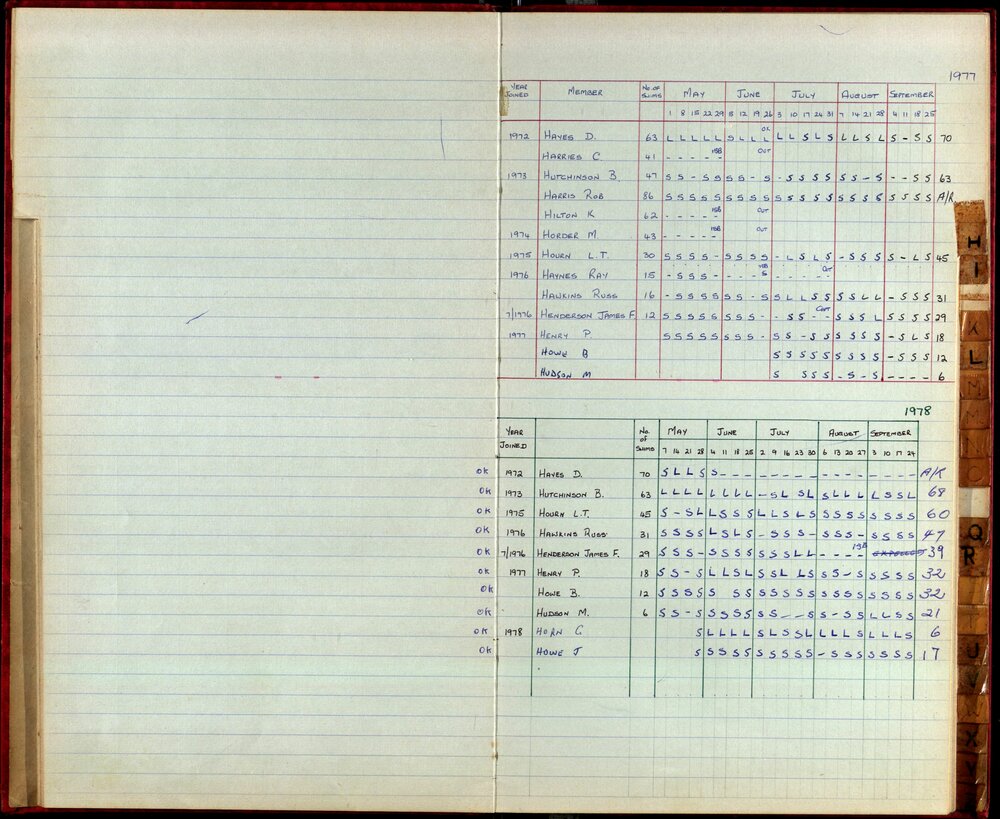 1977
YEAR JOINED MEMBER No. OF SWIMS MAY JUNE JULY AUGUST SEPTEMBER
1 8 15 22 29 5 12 19 26 3 10 17 24 31 7 14 21 28 4 11 18 25
OK
1972 HAYES D. 63 L L L L L S L L L L L S L S L L S L S - S S 70
ISB OUT
HARRIES C. 41 - - - - -
1973 HUTCHINSON B. 47 S S - S S S S - S - S S S S S S - S - - S S 63
HARRIS ROB 86 S S S S S S S S S S S S S S S S S S S S S S A/R
ISB OUT
HILTON K 62 - - - - -
ISB OUT
1974 HORDER M 43 - - - - -
1975 HOURN L.T. 30 S S S S - S S S S - L S L S - S S S S - L S 45
1976 HAYNES RAY 15 - S S S - - - - S - - - OUT
HAWKINS RUSS 16 - S S S S S S - S S L L S S S S L L - S S S 31
7/1976 HENDERSON JAMES F. 12 S S S S S S S S - - S S - - S S S L S S S S 29
1977 HENRY P. S S S S S S S S - S S - S S S S S S - S L S 18
HOWE B S S S S S S S S S - S S S 12
HUDSON M S S S S - S - S - - - - 6
1978
YEAR JOINED No. OF SWIMS MAY JUNE JULY AUGUST SEPTEMBER
7 14 21 28 4 11 18 25 2 9 16 23 30 6 13 20 27 3 10 17 24
OK 1972 HAYES D. 70 S L L S S - - - - - - - - - - - - - - - - A/R
OK 1973 HUTCHINSON B. 63 L L L L L L L L - S L S L S L L L L S S L 68
OK 1975 HOURN L.T. 45 S - S L L S S S L L S L S S S S S S S S S 60
OK 1976 HAWKINS RUSS 31 S S S S L S L S - S S S - S S S - S S S S 47
OK 7/1976 HENDERSON JAMES F. 29 S S S - S S S S S S S L L - - - - ISB EXPELLED 39
OK 1977 HENRY P. 18 S S - S L L S L S S L L S S S - S S S S S 32
OK HOWE B. 12 S S S S S S S S S S S S S S S S S S S S 32
OK HUDSON M. 6 S S - S S S S S S S - - S S - S S L L S S 21
OK 1978 HORN G S L L L L S L S S L L L L S L L L S 6
OK HOWE J S S S S S S S S S S - S S S S S S S 17
H
I
K
L
M
M
N
O
Q
R
T
U
V
W
X
Y